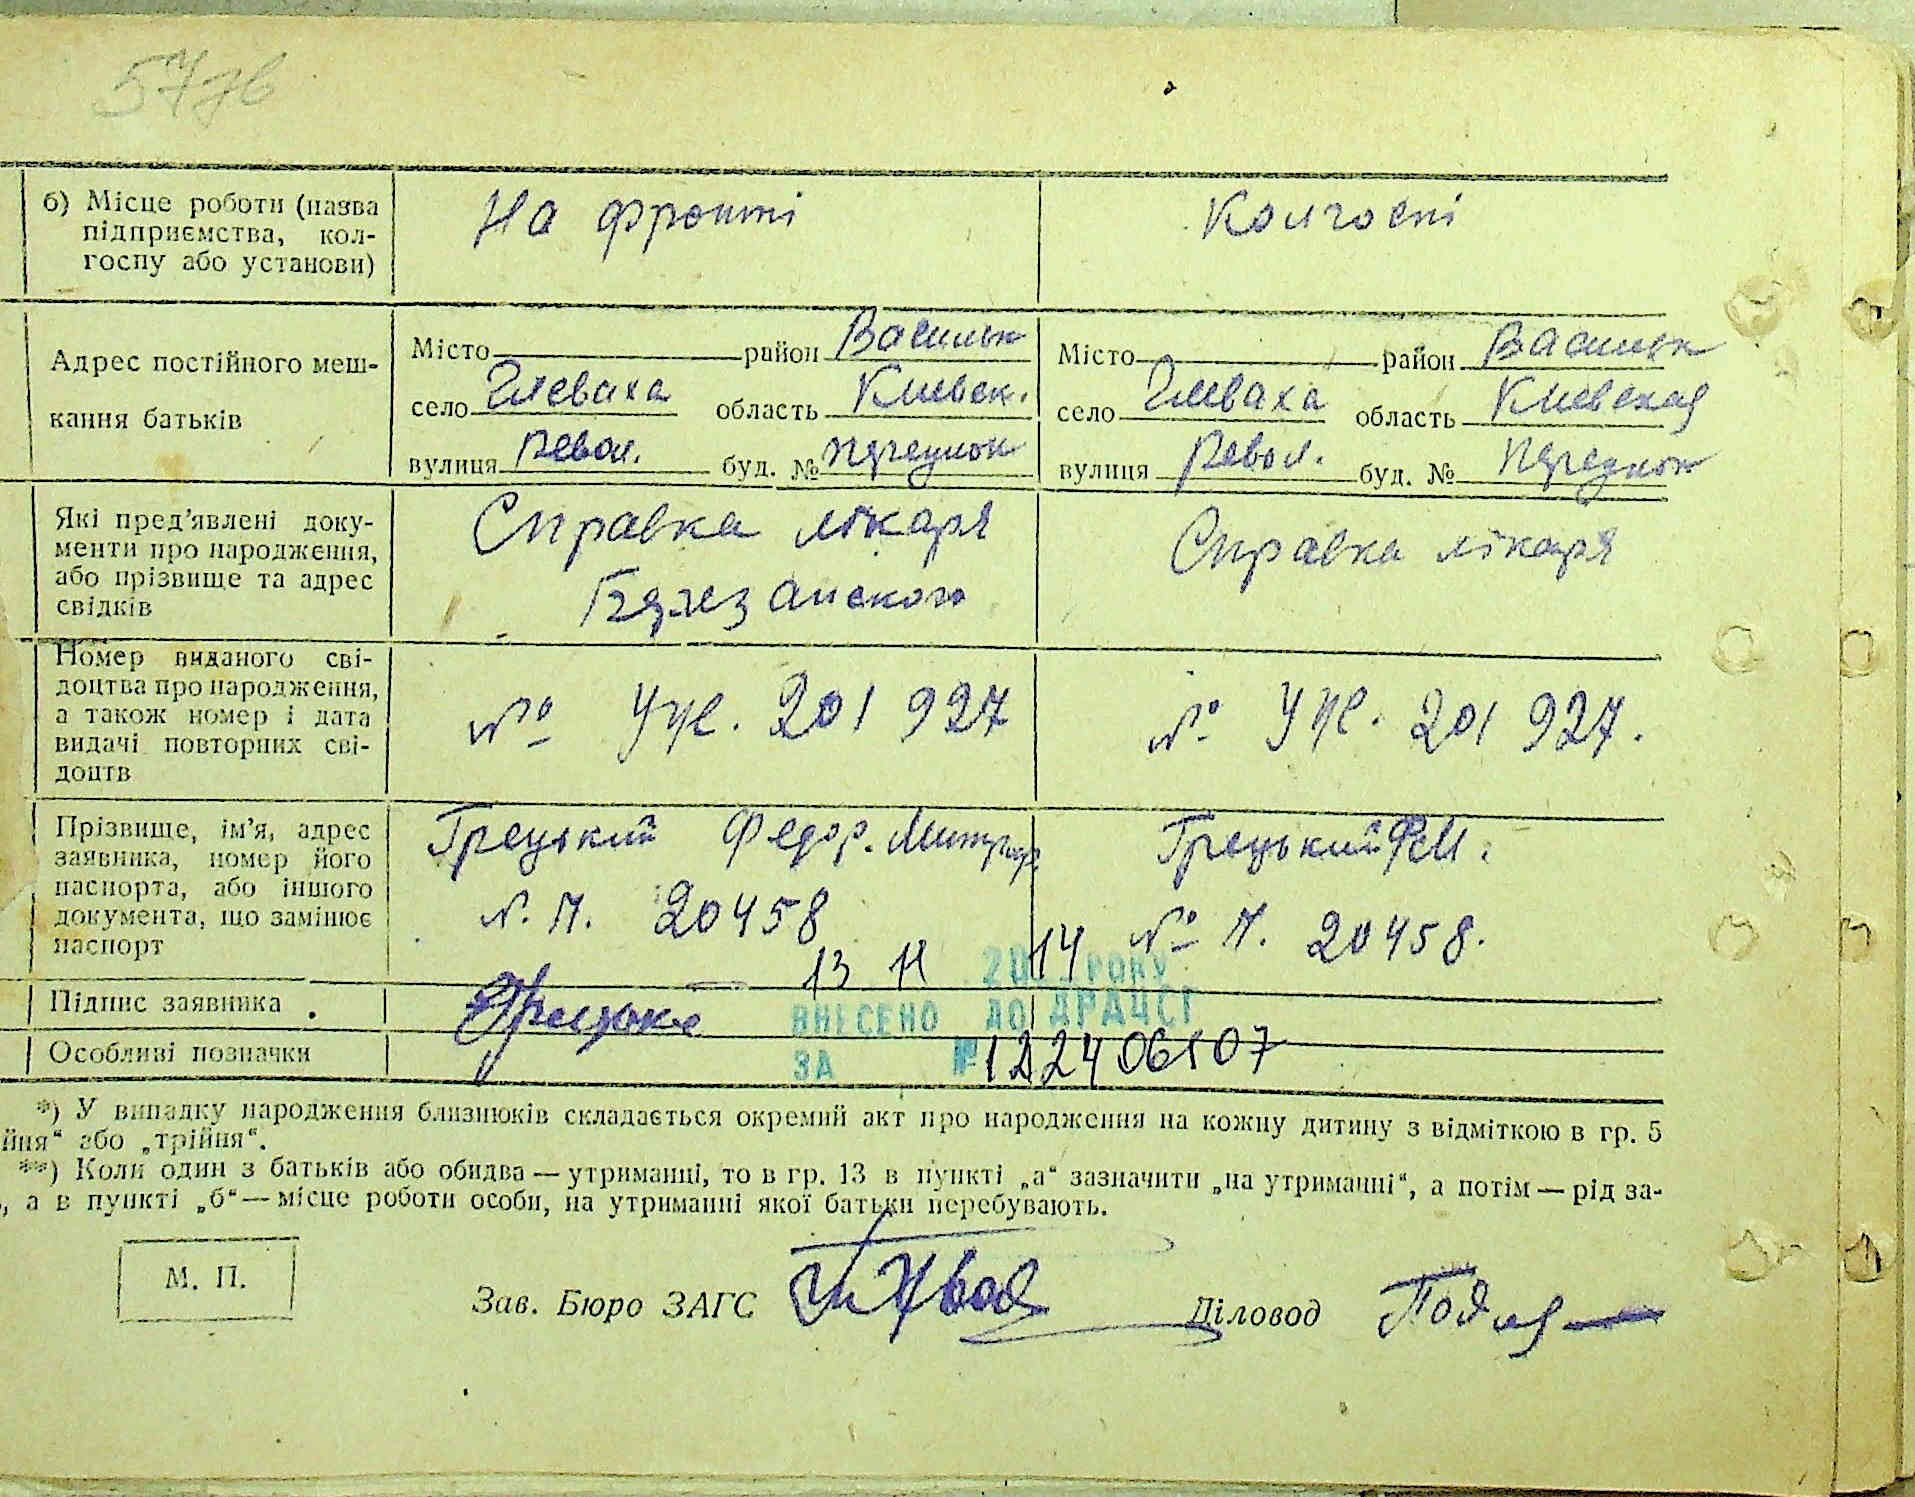 577в
б) Місце роботи (назва
підприємства, кол-
госпу або установи)
На фронті
Колгоспі
Адрес постійного меш-
кання батьків
Місто район Васильк
село Глеваха область Киевск.
вулиця Револ. буд. №
Місто район Васильк
село Глеваха область Киевская
вулиця Револ. буд. №
Які пред’явлені доку-
менти про народження,
або прізвище та адрес
свідків
Справка лікаря
Березанского
Справка лікаря
Номер виданого сві-
доцтва про народження,
а також номер і дата
видачі повторних сві-
доцтв
№ УЖ. 201 927
№ УЖ. 201 927.
Прізвище, ім’я, адрес
заявника, номер його
паспорта, або іншого
документа, що замінює
паспорт
Грецький Федор. Митроф
N. П. 20458
Грецький Ф М.
№ П. 20458.
Підпис заявника
Грецьк
13 11 2014 РОКУ
ВНЕСЕНО ДО ДРАЦСГ
ЗА № 122406107
Особливі позначки
*) У випадку народження близнюків складається окремий акт про народження на кожну дитину з відміткою в гр. 5
йня“ або „трійня“.
**) Коли один з батьків або обидва — утриманці, то в гр. 13 в пункті „а“ зазначити „на утриманні“, а потім — рід за-
, а в пункті „б“ — місце роботи особи, на утриманні якої батьки перебувають.
М. П.
Зав. Бюро ЗАГС
Діловод